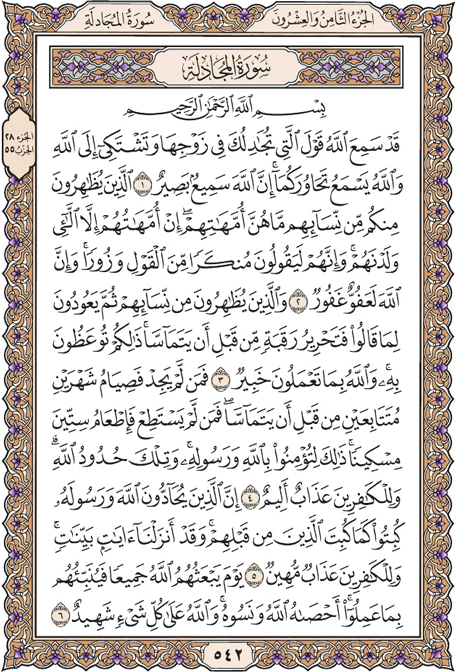 الجُزْءُ الثَّامِنُ وَالعِشْرُونَ
سُورَةُ المُجَادلَةِ
سُورَةُ المُجَادلَةِ
الجزء ٢٨
الحزب ٥٥
بِسْمِ اللَّهِ الرَّحْمَٰنِ الرَّحِيمِ
قَدْ سَمِعَ اللَّهُ قَوْلَ الَّتِي تُجَٰدِلُكَ فِي زَوْجِهَا وَتَشْتَكِيٓ إِلَى اللَّهِ
وَاللَّهُ يَسْمَعُ تَحَاوُرَكُمَآ ۚ إِنَّ اللَّهَ سَمِيعُۢ بَصِيرٌ ١ الَّذِينَ يُظَٰهِرُونَ
مِنكُم مِّن نِّسَآئِهِم مَّا هُنَّ أُمَّهَٰتِهِمْ ۖ إِنْ أُمَّهَٰتُهُمْ إِلَّا الَّٰٓـِٔي
وَلَدْنَهُمْ ۚ وَإِنَّهُمْ لَيَقُولُونَ مُنكَرًا مِّنَ الْقَوْلِ وَزُورًا ۚ وَإِنَّ
اللَّهَ لَعَفُوٌّ غَفُورٌ ٢ وَالَّذِينَ يُظَٰهِرُونَ مِن نِّسَآئِهِمْ ثُمَّ يَعُودُونَ
لِمَا قَالُوا۟ فَتَحْرِيرُ رَقَبَةٍ مِّن قَبْلِ أَن يَتَمَآسَّا ۚ ذَٰلِكُمْ تُوعَظُونَ
بِهِۦ ۚ وَاللَّهُ بِمَا تَعْمَلُونَ خَبِيرٌ ٣ فَمَن لَّمْ يَجِدْ فَصِيَامُ شَهْرَيْنِ
مُتَتَابِعَيْنِ مِن قَبْلِ أَن يَتَمَآسَّا ۖ فَمَن لَّمْ يَسْتَطِعْ فَإِطْعَامُ سِتِّينَ
مِسْكِينًا ۚ ذَٰلِكَ لِتُؤْمِنُوا۟ بِاللَّهِ وَرَسُولِهِۦ ۚ وَتِلْكَ حُدُودُ اللَّهِ ۗ
وَلِلْكَٰفِرِينَ عَذَابٌ أَلِيمٌ ٤ إِنَّ الَّذِينَ يُحَآدُّونَ اللَّهَ وَرَسُولَهُۥ
كُبِتُوا۟ كَمَا كُبِتَ الَّذِينَ مِن قَبْلِهِمْ ۚ وَقَدْ أَنزَلْنَآ ءَايَٰتٍۭ بَيِّنَٰتٍ ۚ
وَلِلْكَٰفِرِينَ عَذَابٌ مُّهِينٌ ٥ يَوْمَ يَبْعَثُهُمُ اللَّهُ جَمِيعًا فَيُنَبِّئُهُم
بِمَا عَمِلُوٓا۟ ۚ أَحْصَىٰهُ اللَّهُ وَنَسُوهُ ۚ وَاللَّهُ عَلَىٰ كُلِّ شَيْءٍ شَهِيدٌ ٦
٥٤٢